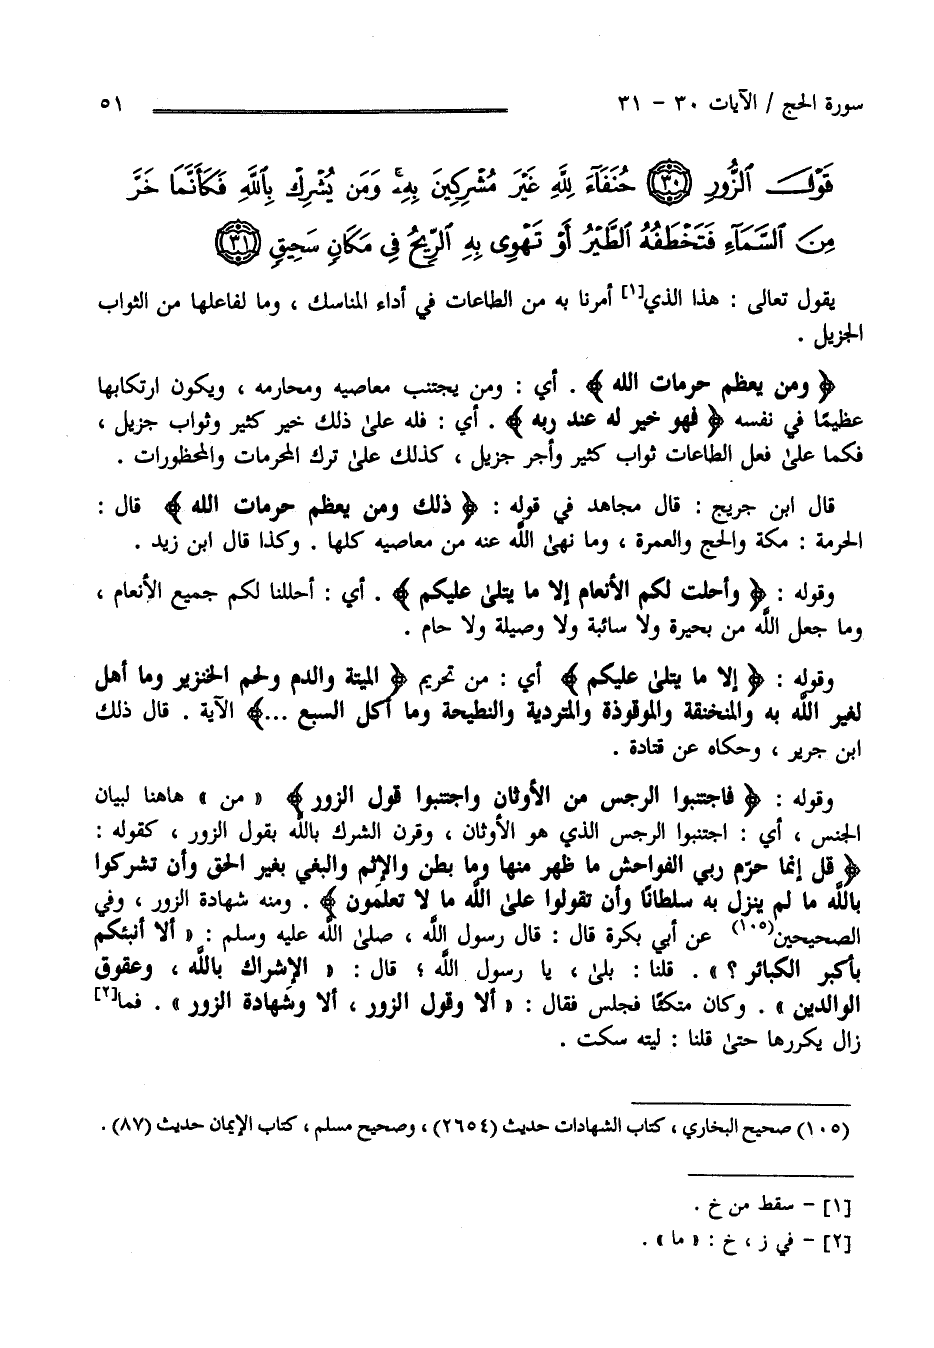 سورة الحج / الآيات ٣٠ - ٣١ ٥١
قَوْلَ ٱلزُّورِ ٣٠ حُنَفَآءَ لِلَّهِ غَيْرَ مُشْرِكِينَ بِهِۦۚ وَمَن يُشْرِكْ بِٱللَّهِ فَكَأَنَّمَا خَرَّ
مِنَ ٱلسَّمَآءِ فَتَخْطَفُهُ ٱلطَّيْرُ أَوْ تَهْوِى بِهِ ٱلرِّيحُ فِى مَكَانٍ سَحِيقٍ ٣١
يقول تعالى : هذا الذي[١] أمرنا به من الطاعات في أداء المناسك ، وما لفاعلها من الثواب
الجزيل .
﴿ ومن يعظم حرمات الله ﴾ . أي : ومن يجتنب معاصيه ومحارمه ، ويكون ارتكابها
عظيمًا في نفسه ﴿ فهو خير له عند ربه ﴾ . أي : فله علىٰ ذلك خير كثير وثواب جزيل ،
فكما علىٰ فعل الطاعات ثواب كثير وأجر جزيل ، كذلك علىٰ ترك المحرمات والمحظورات .
قال ابن جريج : قال مجاهد في قوله : ﴿ ذلك ومن يعظم حرمات الله ﴾ قال :
الحرمة : مكة والحج والعمرة ، وما نهىٰ اللَّه عنه من معاصيه كلها . وكذا قال ابن زيد .
وقوله : ﴿ وأحلت لكم الأنعام إلا ما يتلىٰ عليكم ﴾ . أي : أحللنا لكم جميع الأنعام ،
وما جعل اللَّه من بحيرة ولا سائبة ولا وصيلة ولا حام .
وقوله : ﴿ إلا ما يتلىٰ عليكم ﴾ أي : من تحريم ﴿ الميتة والدم ولحم الخنزير وما أهل
لغير اللَّه به والمنخنقة والموقوذة والمتردية والنطيحة وما أكل السبع ...﴾ الآية . قال ذلك
ابن جرير ، وحكاه عن قتادة .
وقوله : ﴿ فاجتنبوا الرجس من الأوثان واجتنبوا قول الزور ﴾ « من » هاهنا لبيان
الجنس ، أي : اجتنبوا الرجس الذي هو الأوثان ، وقرن الشرك باللَّه بقول الزور ، كقوله :
﴿ قل إنما حرّم ربي الفواحش ما ظهر منها وما بطن والإثم والبغي بغير الحق وأن تشركوا
باللَّه ما لم ينزل به سلطانًا وأن تقولوا علىٰ اللَّه ما لا تعلمون ﴾ . ومنه شهادة الزور ، وفي
الصحيحين(١٠٥) عن أبي بكرة قال : قال رسول اللَّه ، صلىٰ اللَّه عليه وسلم : « ألا أنبئكم
بأكبر الكبائر ؟ » . قلنا : بلىٰ ، يا رسول اللَّه ؛ قال : « الإشراك باللَّه ، وعقوق
الوالدين » . وكان متكئًا فجلس فقال : « ألا وقول الزور ، ألا وشهادة الزور » . فما[٢]
زال يكررها حتىٰ قلنا : ليته سكت .
(١٠٥) صحيح البخاري ، كتاب الشهادات حديث (٢٦٥٤) ، وصحيح مسلم ، كتاب الإيمان حديث (٨٧) .
[١] - سقط من خ .
[٢] - في ز ، خ : « ما » .